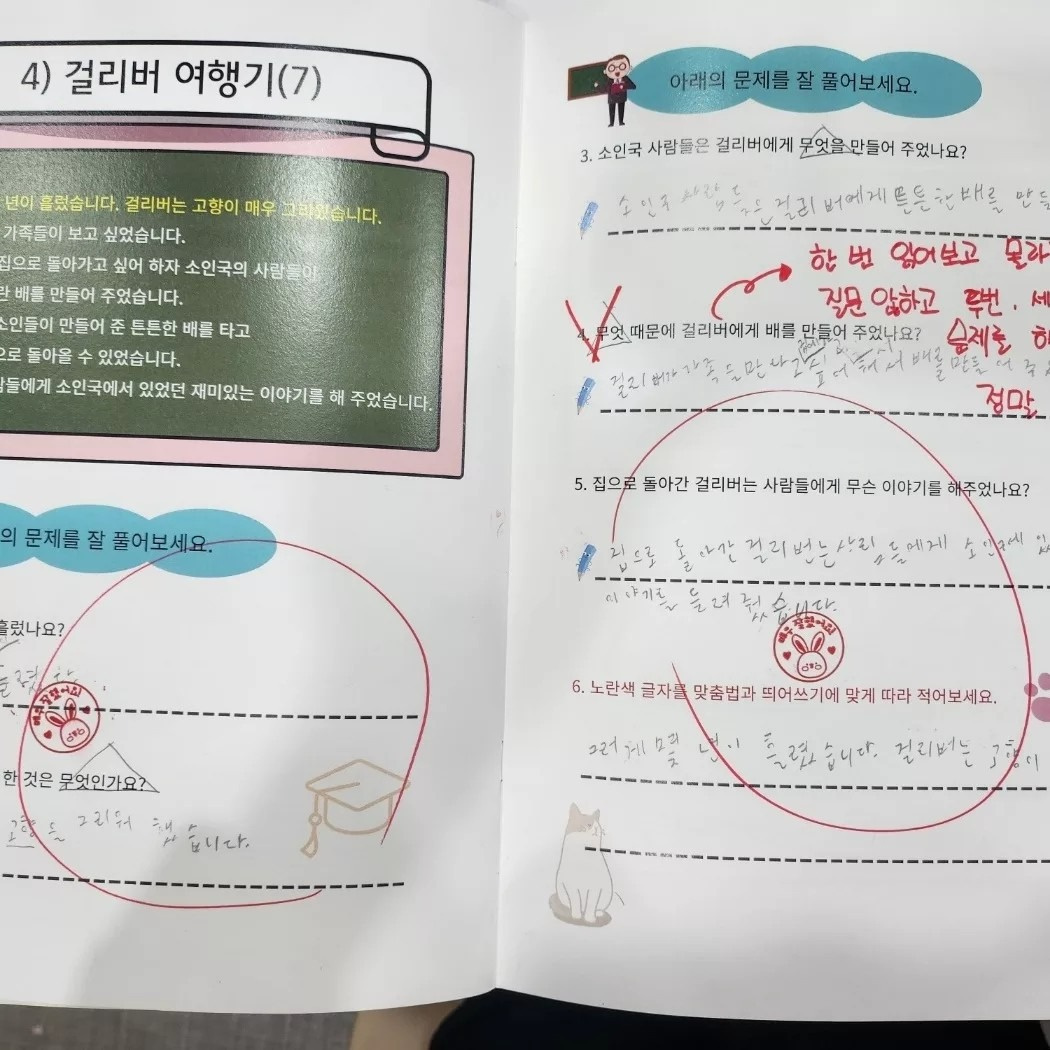 4) 걸리버 여행기(7)
년이 흘렀습니다. 걸리버는 고향이 매우 그리웠습니다.
가족들이 보고 싶었습니다.
집으로 돌아가고 싶어 하자 소인국의 사람들이
란 배를 만들어 주었습니다.
소인들이 만들어 준 튼튼한 배를 타고
으로 돌아올 수 있었습니다.
람들에게 소인국에서 있었던 재미있는 이야기를 해 주었습니다.
의 문제를 잘 풀어보세요.
흘렀나요?
매우 잘했어요!
한 것은 무엇인가요?
고향을 그리워 했습니다.
아래의 문제를 잘 풀어보세요.
3. 소인국 사람들은 걸리버에게 무엇을 만들어 주었나요?
소인국 사람들은 걸리버에게 튼튼한 배를 만들
한 번 읽어보고 몰라
질문 않하고 두번. 세
4. 무엇 때문에 걸리버에게 배를 만들어 주었나요?
숙제를 하
걸리버가 가족을 만나고 싶어해서 배를 만들어 주었
정말
5. 집으로 돌아간 걸리버는 사람들에게 무슨 이야기를 해주었나요?
집으로 돌아간 걸리버는 사람들에게
이야기를 들려 줬습니다.
매우 잘했어요!
6. 노란색 글자를 맞춤법과 띄어쓰기에 맞게 따라 적어보세요.
그러게 몇 년이 흘렀습니다. 걸리버는 고향이